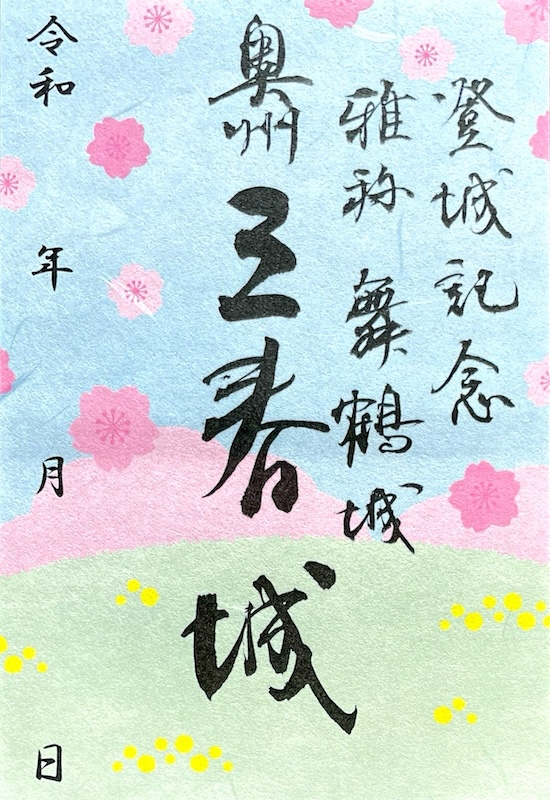 登城記念
雅称 舞鶴城
奥州
三春
城
令和 年 月 日